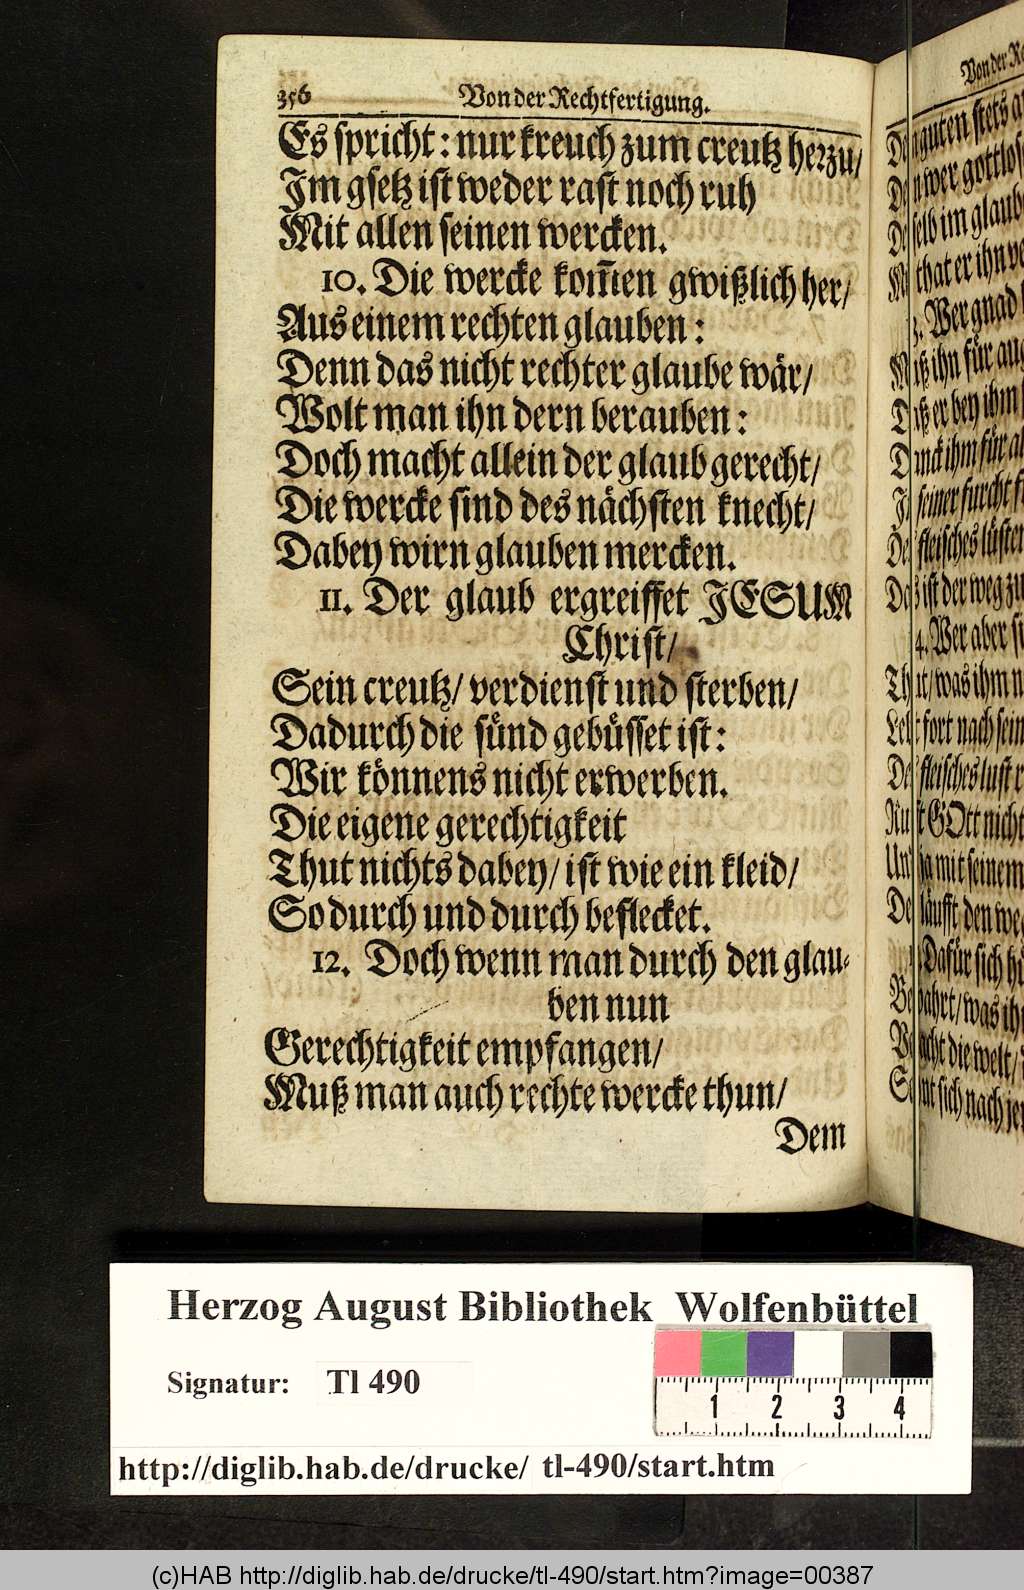 356 Von der Rechtfertigung.
Es spricht: nur kreuch zum creutz herzu/
Im gsetz ist weder rast noch ruh
Mit allen seinen wercken.
10. Die wercke kom̄en gwißlich her/
Aus einem rechten glauben:
Denn das nicht rechter glaube wär/
Wolt man ihn dern berauben:
Doch macht allein der glaub gerecht/
Die wercke sind des nächsten knecht/
Dabey wirn glauben mercken.
11. Der glaub ergreiffet JESUM
Christ/
Sein creutz/ verdienst und sterben/
Dadurch die sünd gebüsset ist:
Wir könnens nicht erwerben.
Die eigene gerechtigkeit
Thut nichts dabey/ ist wie ein kleid/
So durch und durch beflecket.
12. Doch wenn man durch den glau-
ben nun
Gerechtigkeit empfangen/
Muß man auch rechte wercke thun/
Dem
Von der
guten stets
wer gottlos
selb im glaub
that er ihn
Wer gnad
ihn für
er bey ihm
ihm für
seiner furcht
fleisches lüsten
ist der weg zu
4. Wer aber
was ihm
fort nach sein
fleisches lust
GOtt nicht
mit seinem
läufft den
Dafür sich
was
die welt/
sich nach
Herzog August Bibliothek Wolfenbüttel
Signatur: Tl 490
1 2 3 4
http://diglib.hab.de/drucke/ tl-490/start.htm
(c)HAB http://diglib.hab.de/drucke/tl-490/start.htm?image=00387